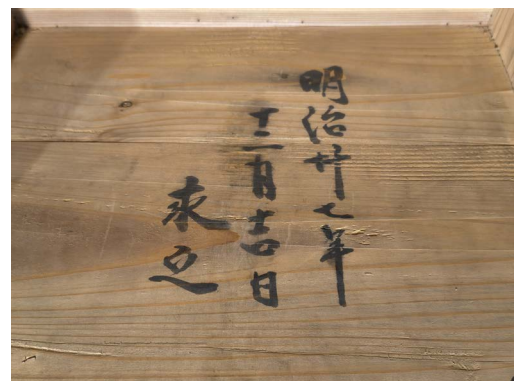 明治廿七年
十二月吉日
求之